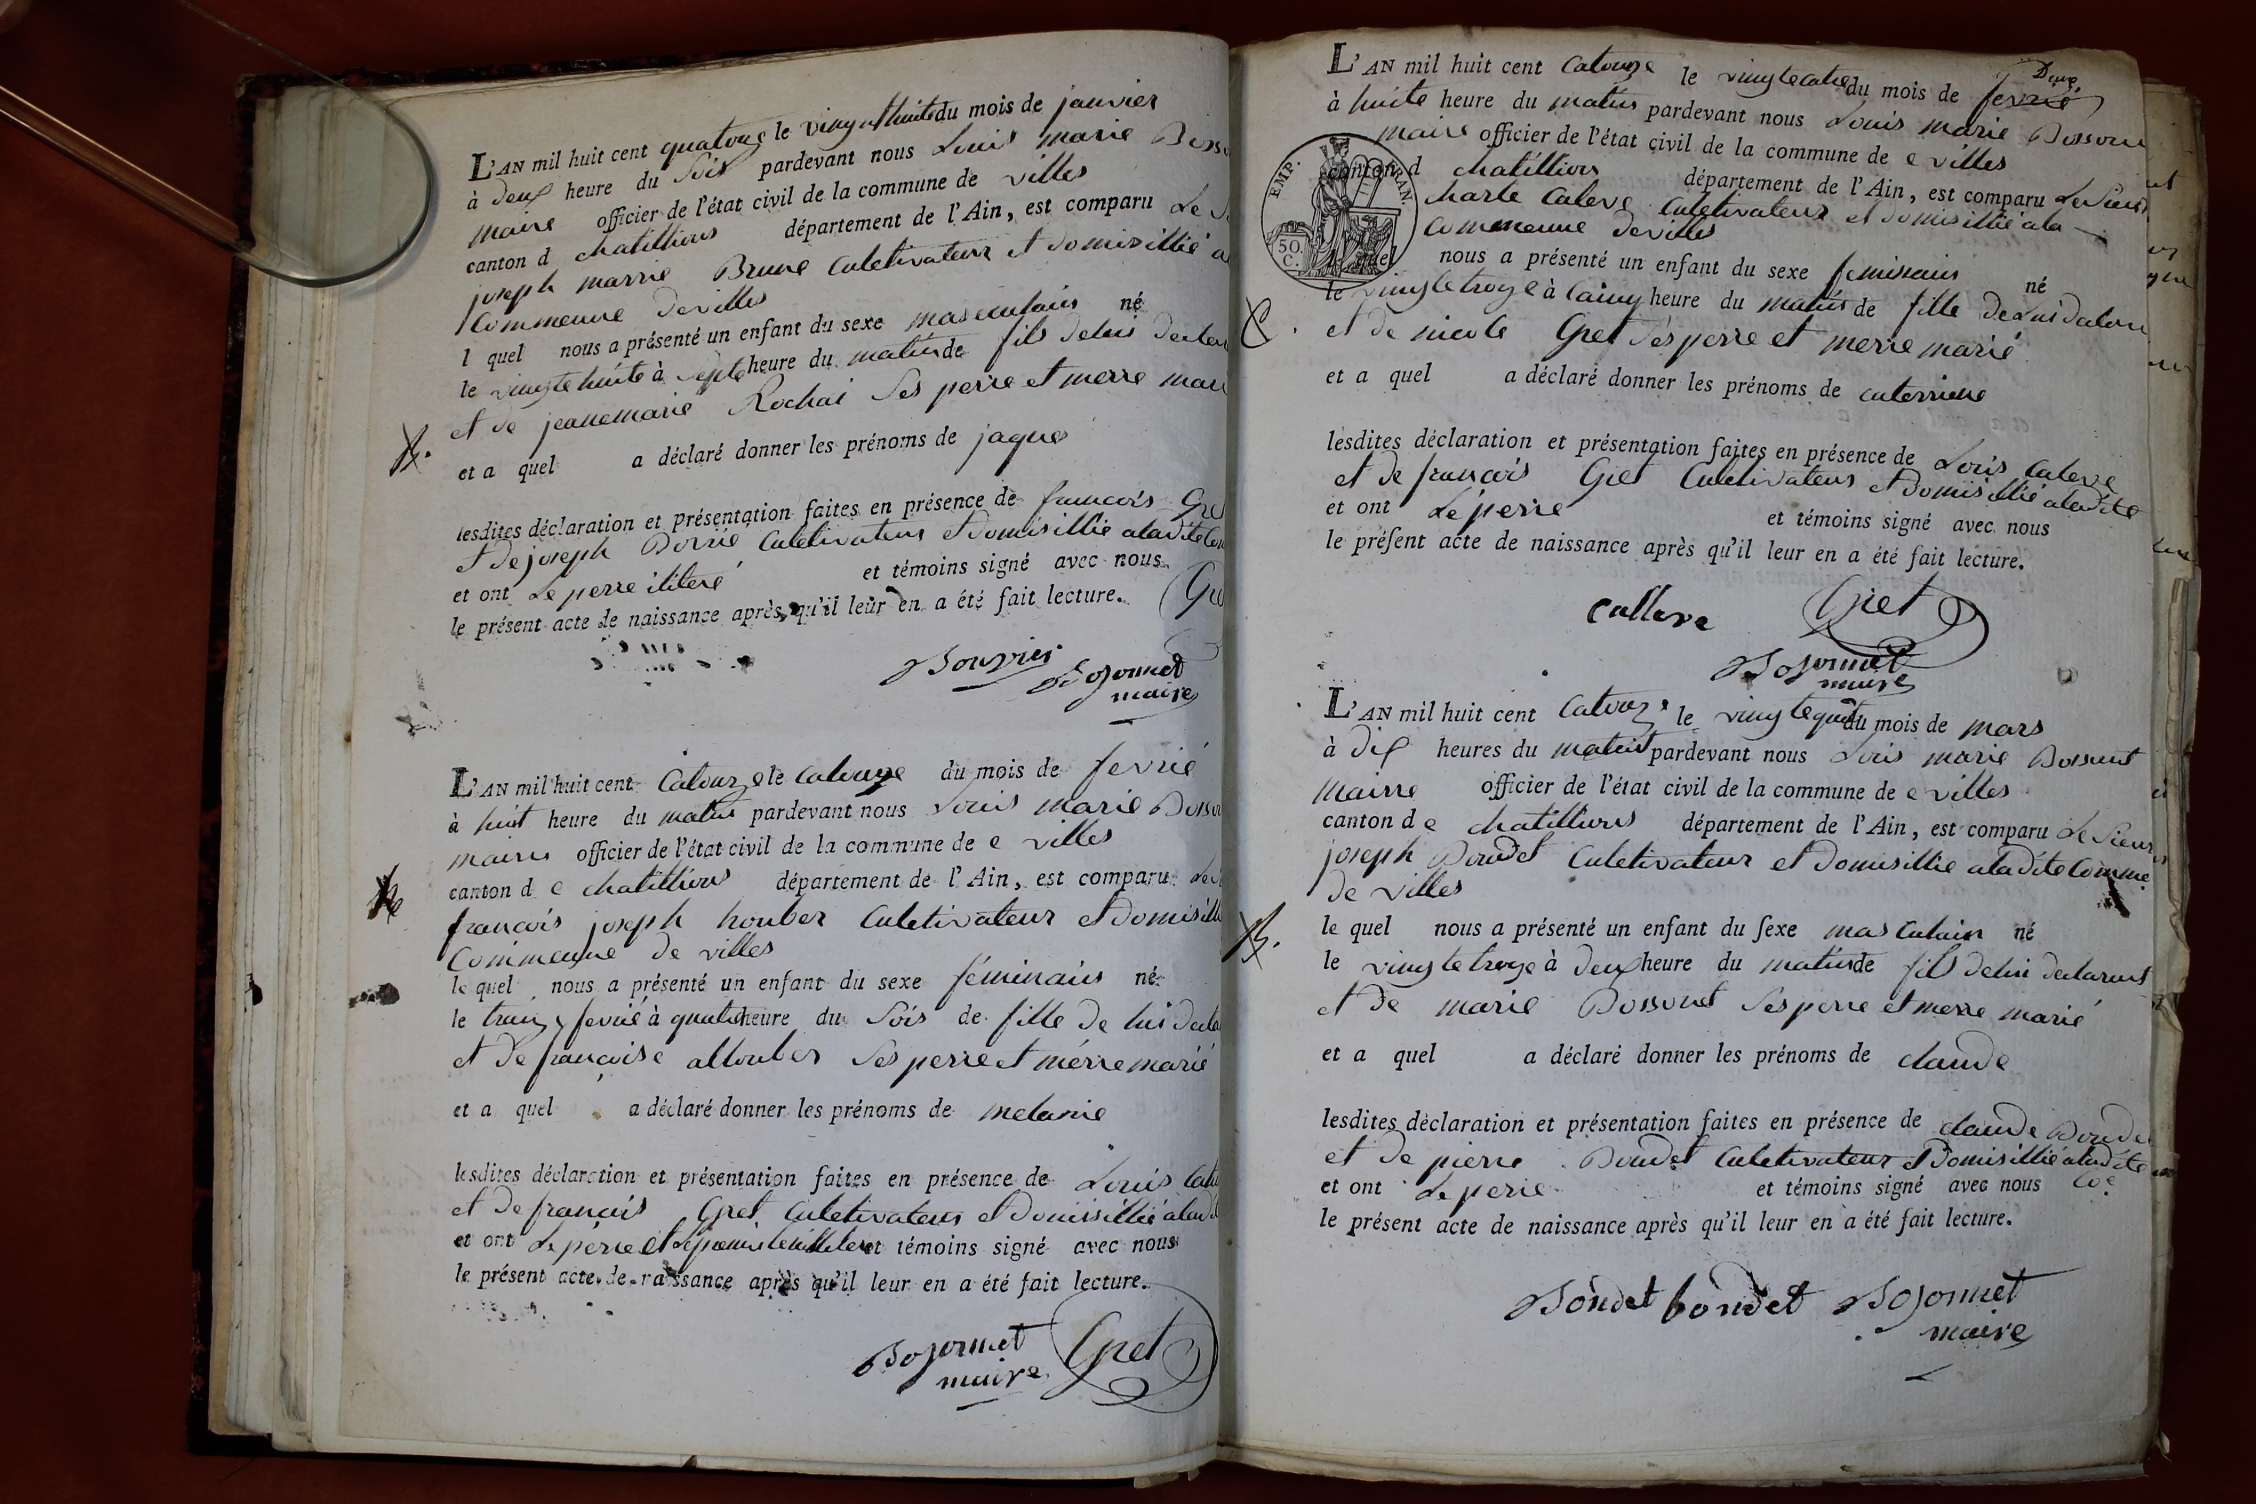 L'AN mil huit cent quatorze le vingthuite du mois de janvier
à deux heure du Soir pardevant nous Louis marie
maire officier de l'état civil de la commune de villes
canton d chatillions département de l'Ain, est comparu Le
joseph marrie Brune culetivateur et domisillié
Commeune de villes
l quel nous a présenté un enfant du sexe masculain né
le vingte huite à septe heure du matin de fils de lui
et de jeanemarie Rochai Ses perre et merre
et a quel a déclaré donner les prénoms de jaques
lesdites déclaration et présentation faites en présence de francois
et de joseph culetivateur et domisillié aladite
et ont Le perre ilitere et témoins signé avec nous
le présent acte de naissance après qu'il leur en a été fait lecture.
Bouvier Bosonnet
maire
L'AN mil huit cent Catorze le catorze du mois de fevrié
à huit heure du matin pardevant nous Louis marie
maire officier de l'état civil de la commune de e villes
canton d e chatillions département de l'Ain, est comparu
francois joseph houber culetivateur et
Commeune de villes
le quel nous a présenté un enfant du sexe féminain né
le fevrié à quatre heure du Soir de fille de lui
et de francoise allouber Ses perre et merre marié
et a quel a déclaré donner les prénoms de melanie
lesdites déclaration et présentation faites en présence de Louis
et de francois Gret culetivateur et domissillié
et ont Le perre et témoins signé avec nous
le présent acte de naissance après qu'il leur en a été fait lecture.
Bosonnet Gret
maire
L'AN mil huit cent Catorze le vingtecatre du mois de fevrié
à huite heure du matin pardevant nous Louis marie
maire officier de l'état civil de la commune de e villes
canton d chatillions département de l'Ain, est comparu Le Sieur
EMP. FRAN.
50 C.
charle Caleve culetivateur et domisillié ala
Commeune de villes
quel nous a présenté un enfant du sexe feminain né
le vingtetroze à cainq heure du matin de fille de lui
et de nicole Gret Ses perre et merre marié
et a quel a déclaré donner les prénoms de caterriene
lesdites déclaration et présentation faites en présence de Louis Caleve
et de francois Gret Culetivateur et domisillié aladite
et ont Le perre et témoins signé avec nous
le présent acte de naissance après qu'il leur en a été fait lecture.
calleve Gret
Bosonnet
maire
L'AN mil huit cent Catorze le du mois de mars
à dix heures du matin pardevant nous Louis marie Bossonet
Mairre officier de l'état civil de la commune de e villes
canton d e chatillions département de l'Ain, est comparu Le Sieur
joseph Boudet culetivateur et domisillie aladite Comme
de villes
le quel nous a présenté un enfant du sexe masculain né
le vingtetroze à deux heure du matin de fils de lui declarent
et de marie Bossonet Ses perre et merre marié
et a quel a déclaré donner les prénoms de claude
lesdites déclaration et présentation faites en présence de claude
et de pierre Boudet culetivateur et domisillié aladite
et ont Le perre et témoins signé avec nous
le présent acte de naissance après qu'il leur en a été fait lecture.
Boudet boudet Bosonnet
maire